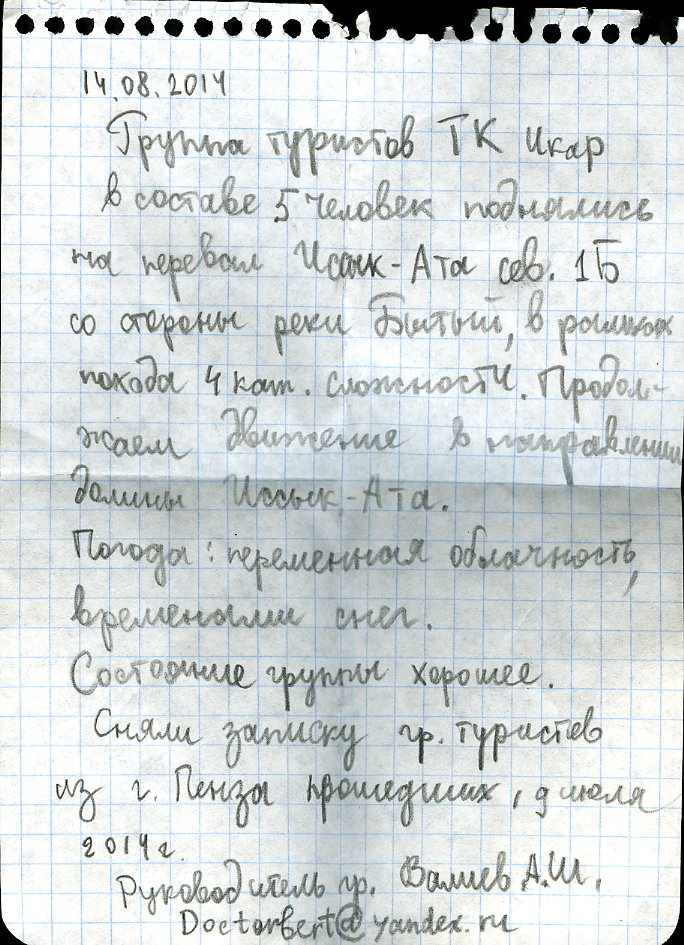 14.08.2014
Группа туристов ТК Икар
в составе 5 человек поднялись
на перевал Иссык-Ата сев. 1Б
со стороны реки Битый, в рамках
похода 4 кат. сложности. Продол-
жаем движение в направлении
долины Иссык-Ата.
Погода: переменная облачность,
временами снег.
Состояние группы хорошее.
Сняли записку гр. туристов
из г. Пенза прошедших, 9 июля
2014 г.
Руководитель гр. Валиев А.Ш.
Doctorbert@yandex.ru